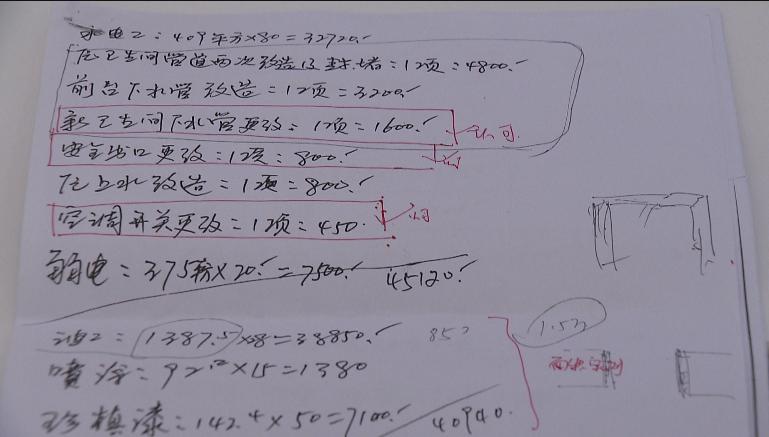 水电工：409平方×80=32720.
后卫生间管道两次改造及封堵=1项=4800.
前台下水管改造=1项=3200.
新卫生间下水管更改=1项=1600. 认可
安全出口更改=1项=800. 认可
后上水改造=1项=800.
空调开关更改=1项=450. 认可
弱电=375×20=7500. 45120.
油工:1387.5×28=38850. 85
喷涂:92×15=1380
珍植漆:142.4×50=7100. 40940.